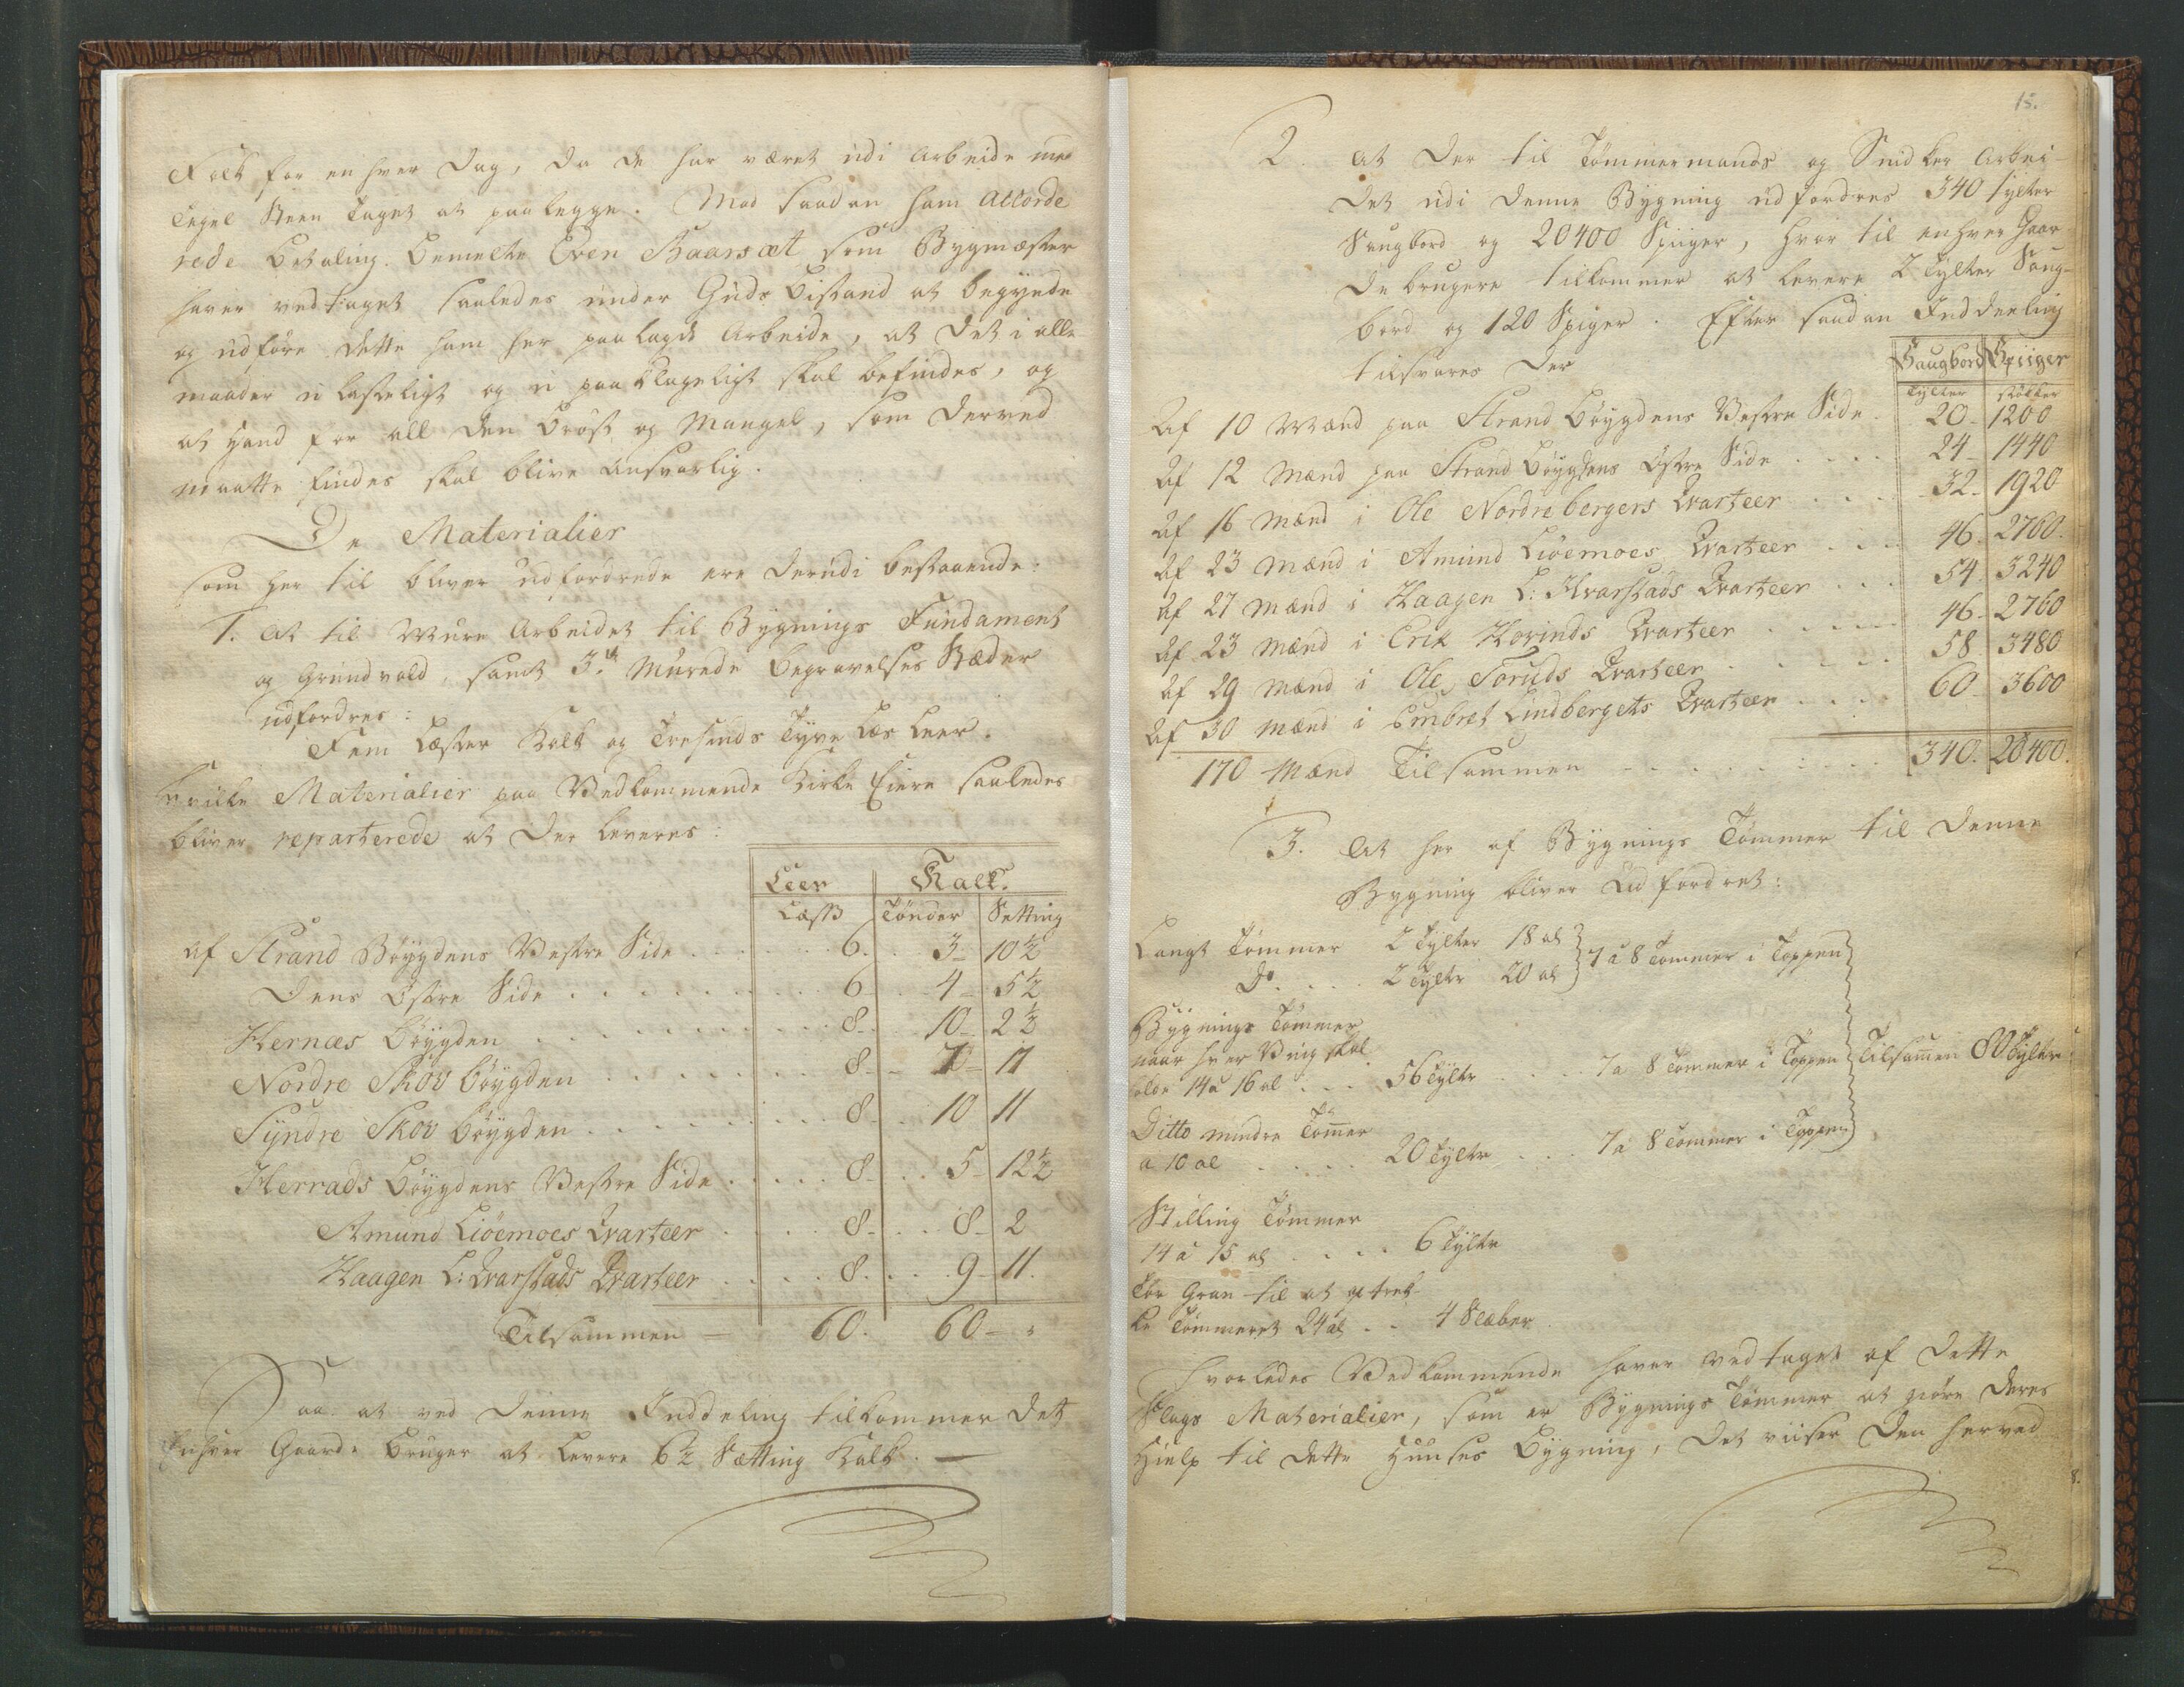 Folk for en hver Dag, da de har været udi Arbeide med
Tegel Steen Taget at paalegge. Mod saadan ham Accorde
rede Betaling. bemelte Even Baarsæt som Bygmæster
haver vedtaget saaledes under Guds Bistand at begynde
og udføre dette ham her paalagde Arbeide, at det i alle
maader u lasteligt og u paaklageligt skal befindes, og
at Hand for all den Brøst og Mangel, som derved
maatte findes skal blive Ansvarlig.
De Materialier
som her til bliver udfordrede ere derudi bestaaende:
1. At til Muure Arbeidet til Bygnings Fundament
og Grundvold, samt 3de Murede Begravelses Stæder
udfordres:
Fem Læster Kalk og Tresinds Tyve Læs Leer.
hvilke Materialier paa Vedkommende Kirke Eiere saaledes
bliver reparterede at der leveres:
Leer Kalk.
Læss Tønder Setting
af Strand Bøygdens Vestre Side . . . 6. 3 10½
Dens Østre Side . . . 6 4 5½
Hernæs Bøygden . . . 8 10 2½
Nordre Skov bøygden . . . 8 7 11
Syndre Skov bøygden . . . 8 10 11
Herrads Bøygdens Vestre Side . . . 8 5 12½
Amund Liøemoes Qvarteer . . . 8 8 2
Haagen L: Qvarstads Qvarteer . . . 8 9 11.
Tilsammen — 60. 60 — "
Saa at ved denne Inddeling tilkommer det
Enhver Gaarde Bruger at Levere 6½ Sætting Kalk. —
15.
2. At der til Tømmermands og Snidker Arbei-
det udi denne Bygning udfordres 340 tylter
Saugbord og 20400 Spiiger, hvor til enhver Gaar
de brugere tilkommer at levere 2 Tylter Saug-
bord og 120 Spiger. Efter saadan Inddeeling
tilsvares der
Saugbord Spiiger
Tylter stökker
Af 10 Mænd paa Strand Bøygdens Vestre Side . 20 1200
Af 12 Mænd paa Strand Bøygdens Østre Side . . . 24 1440
Af 16 Mænd i Ole Nordrebergers Qvarteer . . . 32 1920
Af 23 Mænd i Amund Liøemoes Qvarteer . . . 46 2760.
Af 27 Mænd i Haagen L: Kvarstads Qvarteer . . . 54 3240
Af 23 Mænd i Erik Hovinds Qvarteer . . . 46 2760
Af 29 Mænd i Ole Soruds Qvarteer . . . 58 3480
Af 30 Mænd i Embret Lindbergets Qvarteer . . . 60 3600
170 Mænd Tilsammen . . . 340. 20400.
3. At her af Bygnings Tømmer til denne
Bygning bliver Udfordret:
Langt Tømmer 2 Tylter 18 al
7 a 8 Tommer i Toppen
Do. . . . 2 Tylter 20 al
Bygnings Tømmer
naar hver Vrag skal
olde 14 a 16 al . . . 56 Tylter . . . 7 a 8 Tommer i Toppen Tilsamen 80 Tylter
Ditto mindre Tømer
a 10 al . . . 20 Tylter . . . 7 a 8 Tommer i Toppen
Stilling Tømmer
14 a 15 al . . . 6 Tylter
Tør Gran til at optrek-
ke Tømmeret 24 al . . 4 Stæber
Hvorledes Vedkommende haver vedtaget af dette
Slags Materialier, som er Bygnings Tømmer at giøre deres
Hielp til dette Huuses Bygning, det viiser den herved